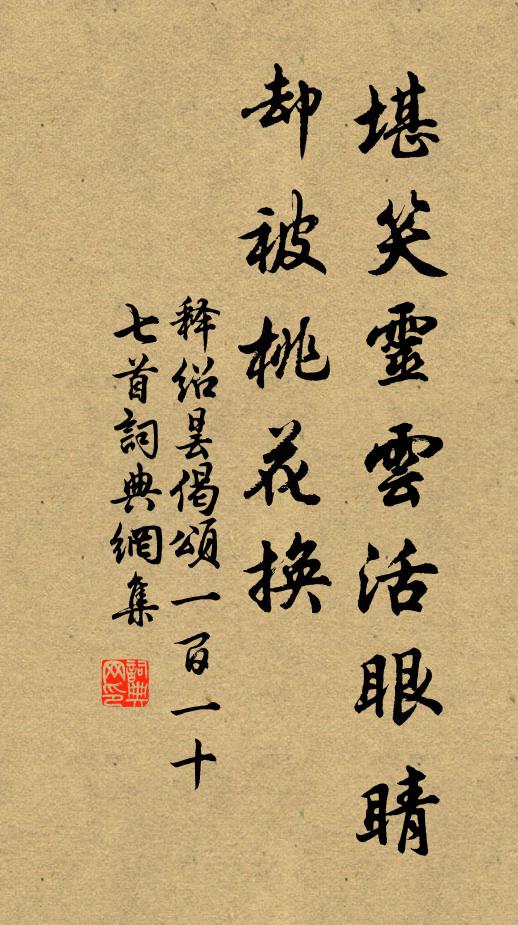 堪笑靈雲活眼睛
却被桃花換
释紹曇偈頌一百一十
七首詞典網集
詞典网印